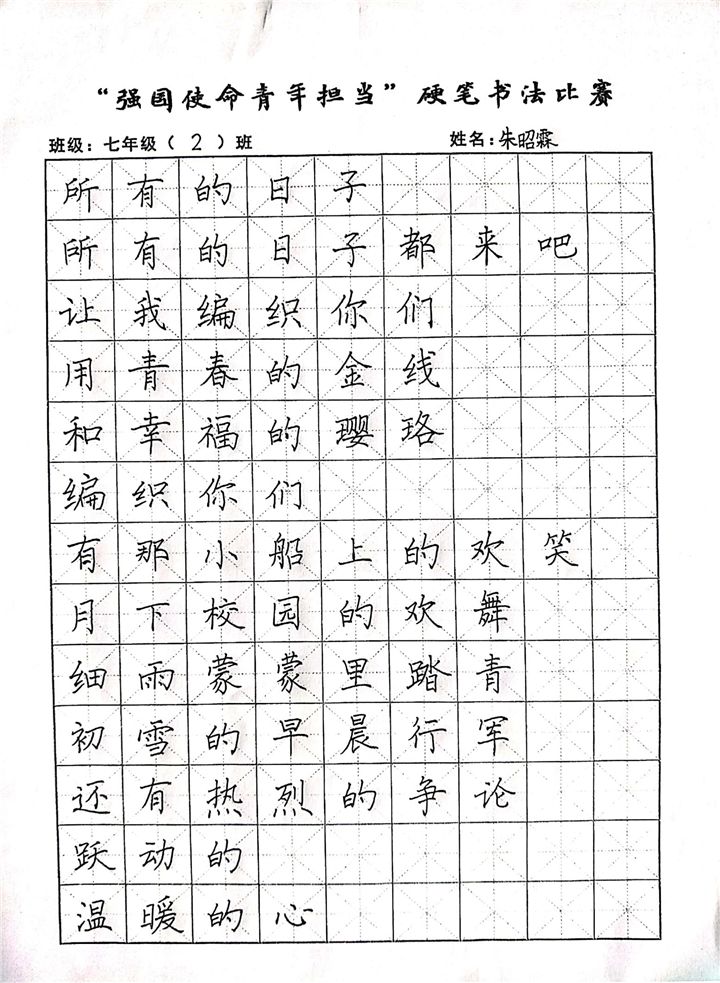 “强国使命青年担当”硬笔书法比赛
班级：七年级（2）班 姓名：朱昭霖
所有的日子
所有的日子都来吧
让我编织你们
用青春的金线
和幸福的璎珞
编织你们
有那小船上的欢笑
月下校园的欢舞
细雨蒙蒙里踏青
初雪的早晨行军
还有热烈的争论
跃动的
温暖的心